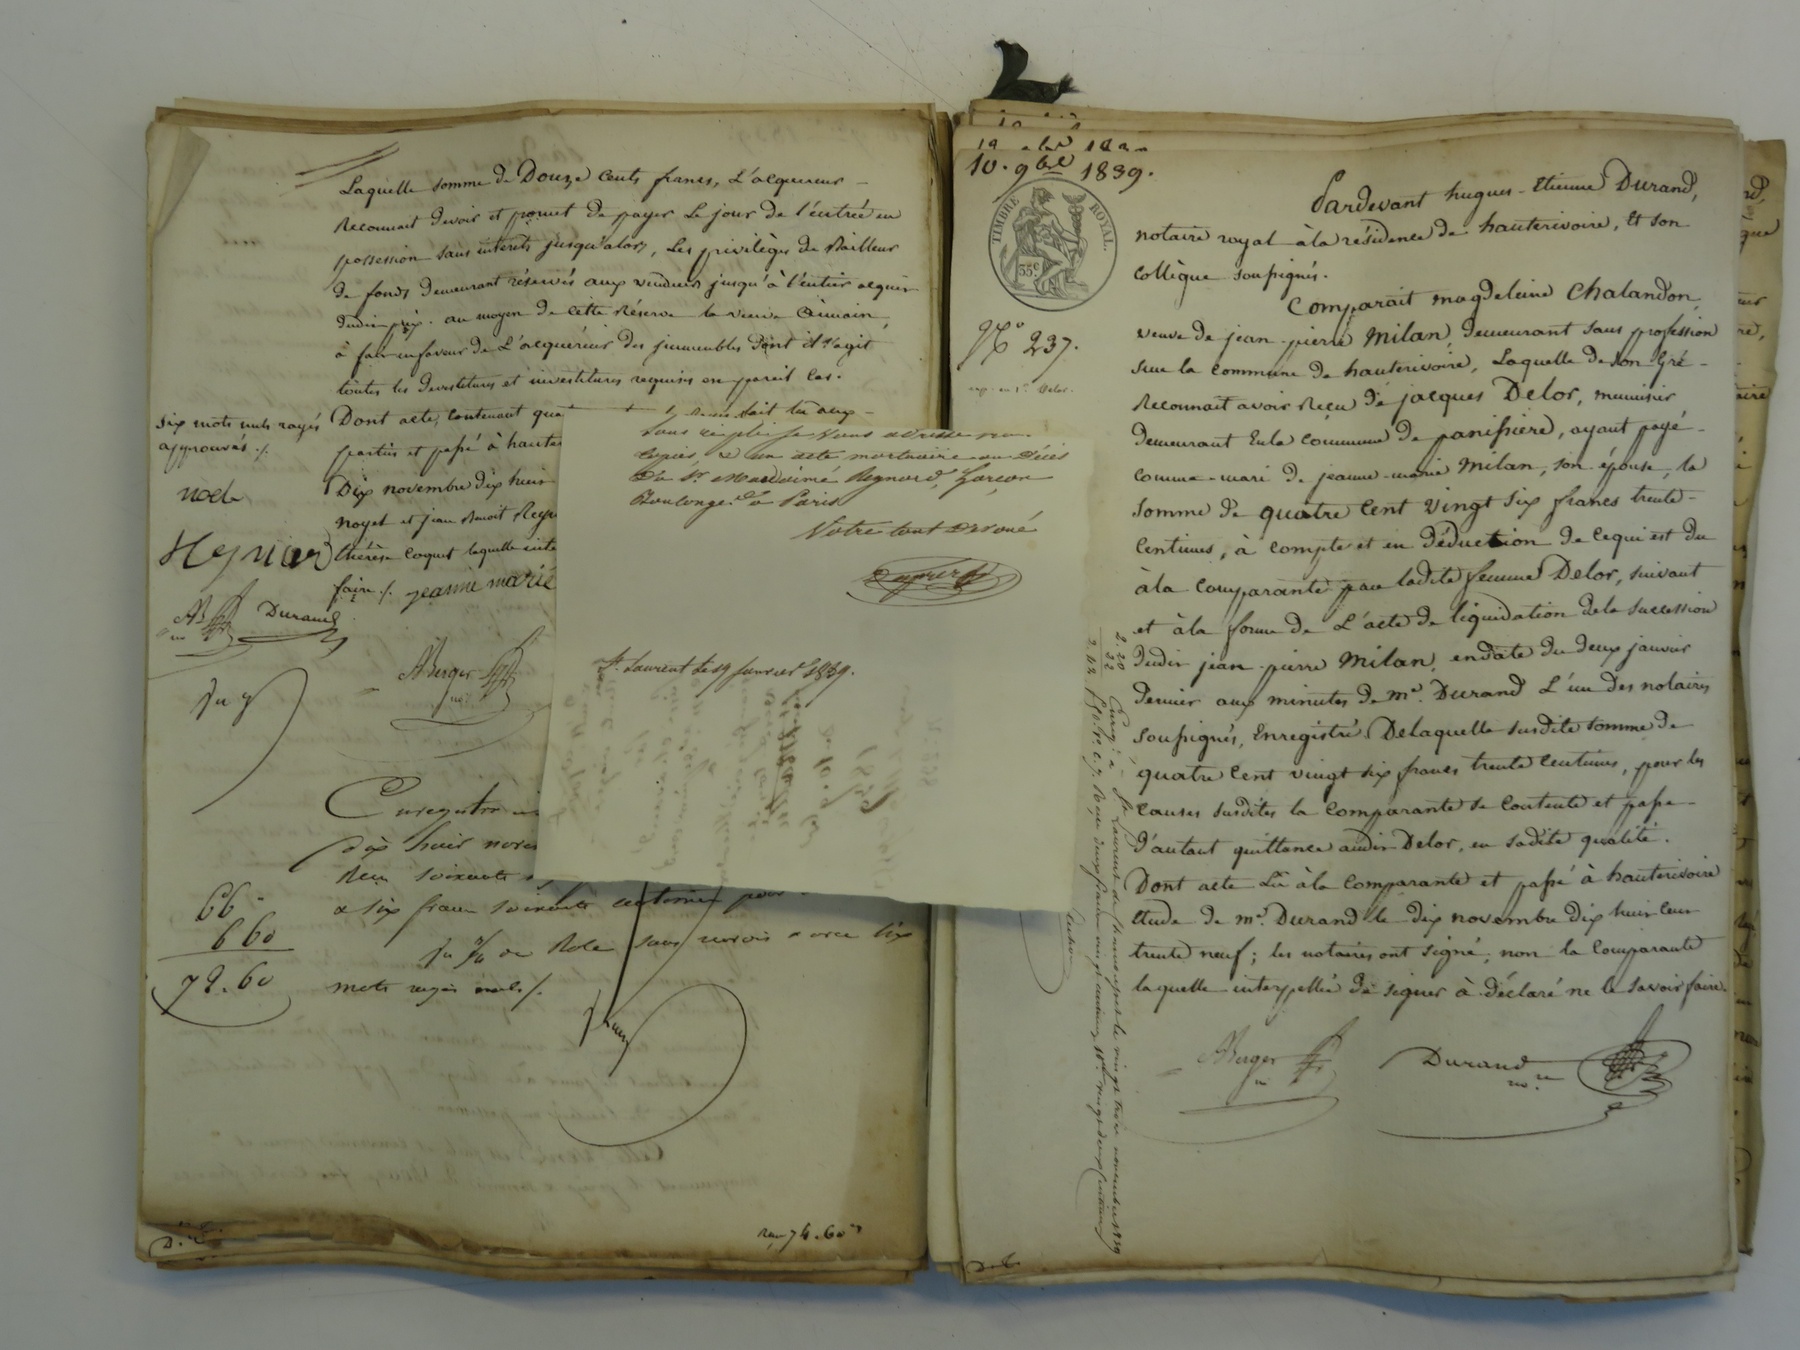 Laquelle somme de Douze Cents francs, L'acquereur
Reconnait devoir et promet de payer Le jour de l'entrée en
possession sans intérêts jusqu'alors, Les privilèges de Bailleur
de fonds demeurant réservés aux vendeurs jusqu'à l'entier acquit
dudit prix. au moyen de cette Réserve la veuve
à fait en faveur de L'acquéreur des immeubles Dont il s'agit
toutes les devestitures et investitures requises en pareil Cas.
six mots nuls rayés
approuvés ./.
Dont acte, contenant
fait lu aux
parties et passé à haute
Dix novembre dix huit
noyel et jean Benoit
thérèse Coquet laquelle
faire ./. jeanne marie
Durand
ABerger
dix huit nov
Reçu soixante
& six francs soixante centimes pour
Rôle sans renvois & avec six
mots rayés nuls ./.
66 "
6 60
72.60
Reçu 74.60
Sous ce pli je vous adresse
copies, & un acte mortuaire ou Décès
Du Sr. Reynard, Garçon
Boulanger à Paris
Votre tout Dévoué
St. Laurent le 19 janvier 1839.
10. 9bre 1839.
TIMBRE ROYAL.
35c
No 237.
Pardevant hugues-Etienne Durand,
notaire royal à la résidence de hauterivoire, Et son
Collègue soussignés.
Comparait magdeleine Chalandon,
veuve de jean-pierre Milan, demeurant sans profession
sur la commune de hauterivoire, Laquelle de son Gré
Reconnait avoir Reçu de jacques Delor, menuisier
demeurant En la commune de panissière, ayant payé
comme mari de jeanne-marie Milan, son épouse, la
somme de quatre Cent Vingt six francs trente
Centimes, à compte et en déduction de Ce qui est du
à la comparante par ladite femme Delor, suivant
et à la forme de L'acte de liquidation de la succession
dudit jean-pierre Milan, en date du deux janvier
dernier aux minutes de me. Durand L'un des notaires
soussignés, Enregistré. De laquelle susdite somme de
quatre Cent vingt six francs trente Centimes, pour les
Causes susdites la Comparante se Contente et passe
d'autant quittance audit Delor, en sadite qualité.
Dont acte Lu à la Comparante et passé à hauterivoire
Etude de me. Durand le dix novembre dix huit cent
trente neuf; les notaires ont signé, non la Comparante
laquelle interpellée de signer à déclaré ne le savoir faire.
ABerger
Durand
nore
2.20
22
2.42
Enreg. à St. Laurent de Chamousset le vingt trois novembre 1839
Reçu deux francs vingt centimes, 10me vingt deux Centimes